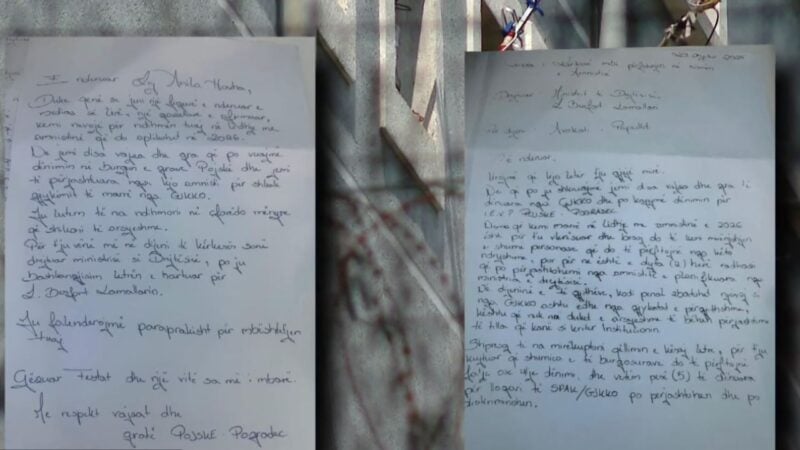 E nderuar Znj Anila Hoxha,
Duke qenë se jeni një figurë e nderuar e
medias së lirë, një gazetare e afirmuar,
kemi nevojë për ndihmën tuaj në lidhje me
amnistinë që do aplikohet në 2026.
Ne jemi disa vajza dhe gra që po vuajmë
dënimin në burgun e grave Pojskë dhe jemi
të përjashtuara nga kjo amnisti për shkak
gjykimit të marrë nga GJKKO.
Ju lutem të na ndihmoni në çfarëdo mënyre
që shikoni të arsyeshme.
Për t'ju vënë më në dijeni të kërkesën sonë
drejtuar ministrisë së Drejtësisë, po ju
bashkangjisim letrën e hartuar për
Z. Besfort Lamallarin.
Ju falenderojmë paraprakisht për mbështetjen
tuaj
Gëzuar Festat dhe një vit sa më i mbarë.
Me respekt vajzat dhe
gratë POJSKE - Pogradec
Lënda: Kërkesë mbi përfshirjen në
e Amnistisë
Drejtuar Ministrit të Drejtësisë
Z. Besfort Lamallari
në dijeni Avokati i Popullit
Të nderuar,
Urojmë që kjo letër t'ju gjejë mirë.
Ne që po ju shkruajmë jemi disa vajza dhe gra të
dënuara nga GJKKO dhe po kryejmë dënimin për
I.E.V.P POJSKE - POGRADEC
Duke që kemi marrë në lidhje me amnistinë e 2026
është për t'u vlerësuar dhe brenda do të ken mundësinë
e shumë personave që do të përfitojnë nga këto
ndryshime, por për ne është e dyta (2) herë radhazi
që po përjashtohemi nga amnistitë e planifikuara nga
ministria e drejtësisë.
Në dijeninë e të gjithëve, kodi penal zbatohet njësoj si
nga GJKKO ashtu edhe nga gjykatat e përgjithshme,
kështu që nuk na duket e arsyeshme të bëhen përjashtime
të tilla që kanë si kriter Institucionin.
Shpresoj të na mirëkuptoni qëllimin e kësaj letre, për t'ju
kujtuar që shumica e të burgosurave do të përfitojnë
falje ose ulje dënimi, dhe vetëm pesë (5) të dënuara
për llogari të SPAK/GJKKO po përjashtohen dhe po
diskriminohen.